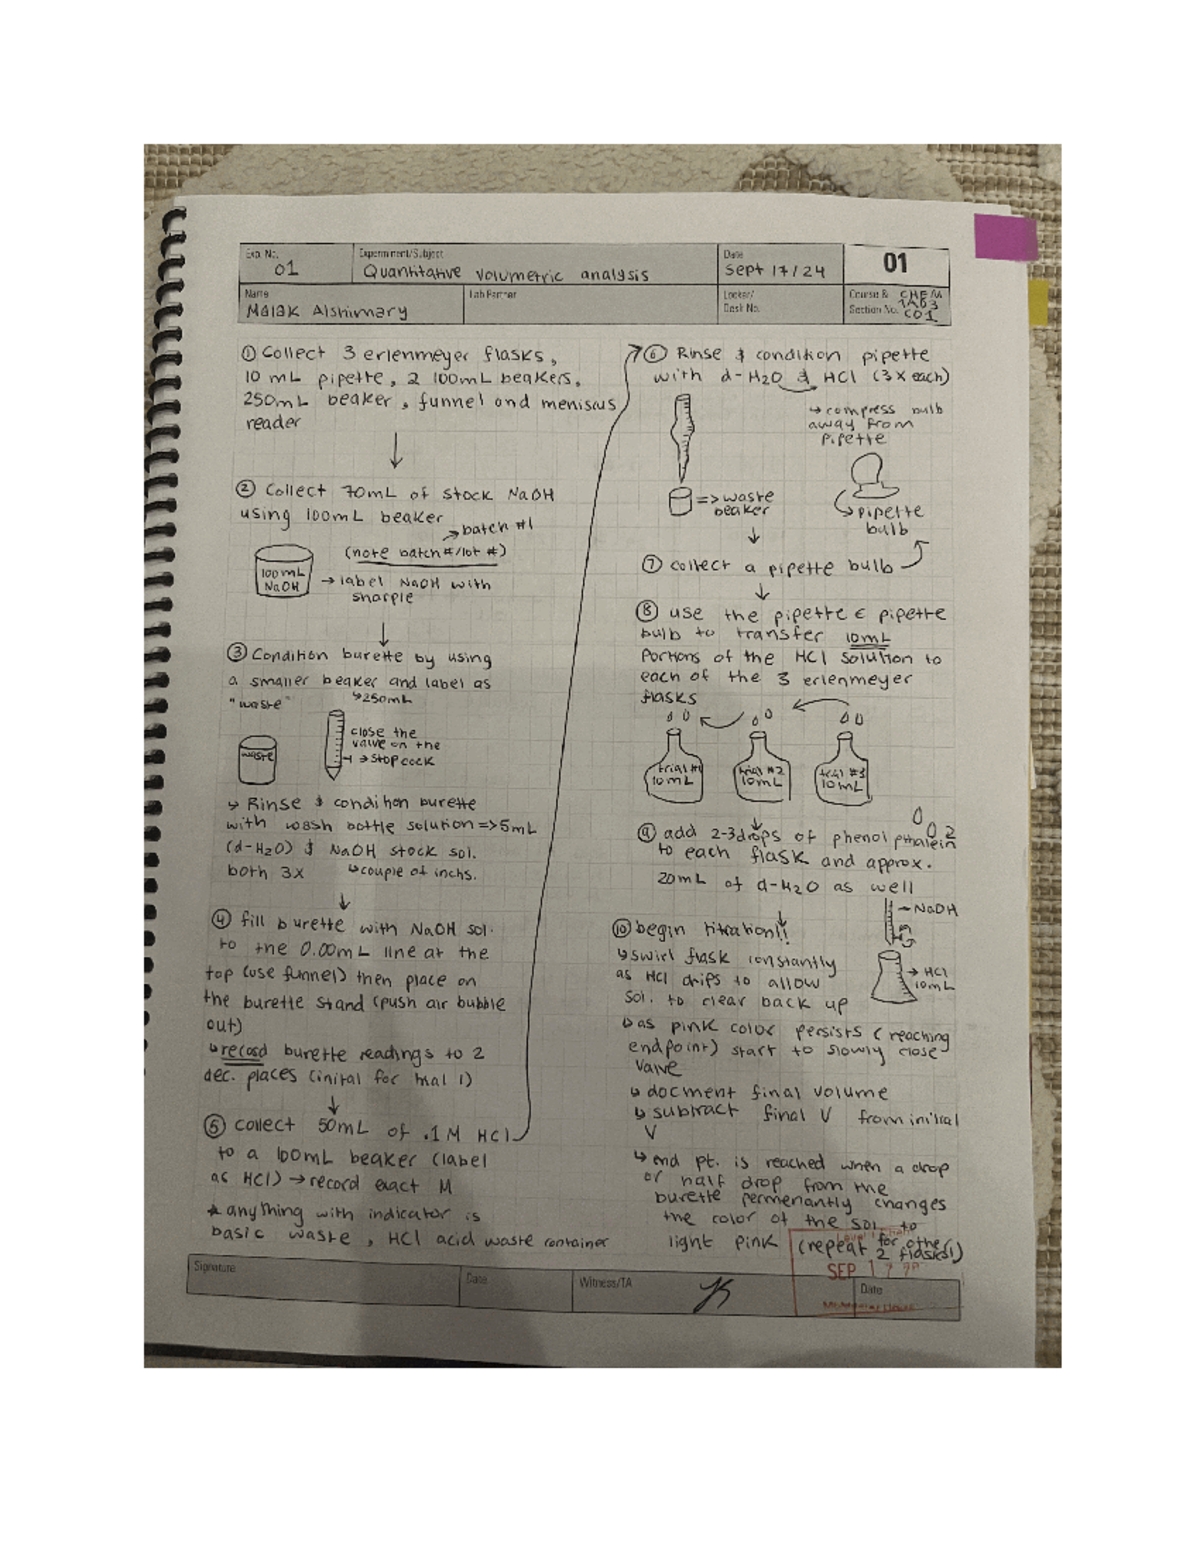 Exp. No.
01
Experiment/Subject
Quantitative volumetric analysis
Date
Sept 17/24
01
Name
Malak Alshimary
Lab Partner
Locker/
Desk No.
Course &
Section No.
CHEM
1A03
C01
① Collect 3 erlenmeyer flasks,
10 mL pipette, 2 100mL beakers,
250mL beaker, funnel and meniscus
reader
② Collect 70mL of stock NaOH
using 100mL beaker
→ batch #1
(note batch #/lot #)
100mL
NaOH
→ label NaOH with
sharpie
③ Condition burette by using
a smaller beaker and label as
"waste"
↳250mL
waste
close the
valve on the
→ stopcock
↳ Rinse & condition burette
with wash bottle solution => 5mL
(d-H2O) & NaOH stock sol.
both 3x
↳couple of inchs.
④ fill burette with NaOH sol.
to the 0.00mL line at the
top (use funnel) then place on
the burette stand (push air bubble
out)
↳ record burette readings to 2
dec. places (inital for trial 1)
⑤ collect 50mL of .1M HCl
to a 100mL beaker (label
as HCl) → record exact M
* anything with indicator is
basic waste, HCl acid waste container
⑥ Rinse & condition pipette
with d-H2O & HCl (3x each)
↳ compress bulb
away from
pipette
=> waste
beaker
pipette
bulb
⑦ collect a pipette bulb
⑧ use the pipette & pipette
bulb to transfer 10mL
portions of the HCl solution to
each of the 3 erlenmeyer
flasks
trial #1
10mL
trial #2
10mL
trial #3
10mL
⑨ add 2-3 drops of phenolpthalein
to each flask and approx.
20mL of d-H2O as well
NaOH
→ HCl
10mL
⑩ begin titration!!
↳ swirl flask constantly
as HCl drips to allow
sol. to clear back up
↳ as pink color persists (reaching
endpoint) start to slowly close
valve
↳ docment final volume
↳ subtract final V from initial
V
↳ end pt. is reached when a drop
or half drop from the
burette permenantly changes
the color of the sol. to
light pink (repeat for other
2 flasks!)
SEP 17
Signature
Date
Witness/TA
Date